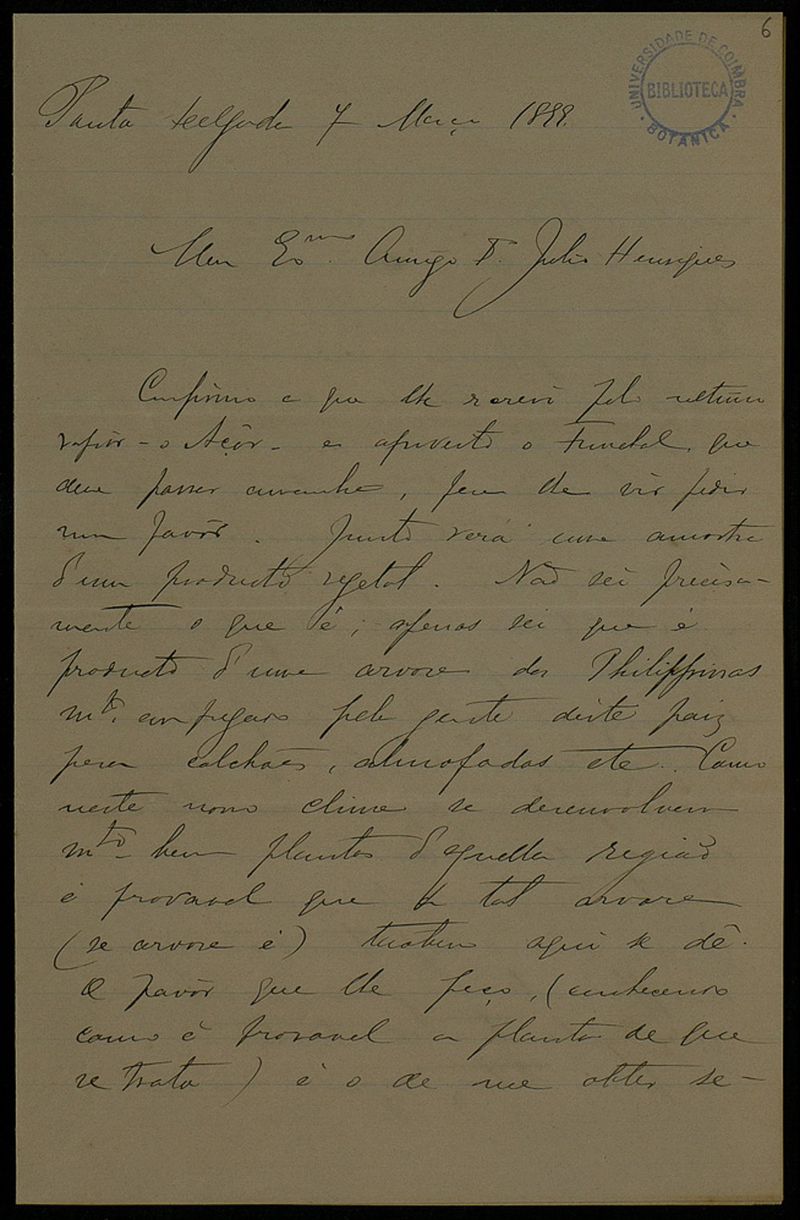 6
UNIVERSIDADE DE COIMBRA
BIBLIOTECA
BOTANICA
Ponta Delgada 7 Março
Meu Exmo. Amigo Dr. Julio Henriques
Confirmo o que lhe escrevi pelo ultimo
vapôr - o Açôr - e aproveito o Funchal, que
deve passar amanhã, para lhe vir pedir
um favôr. Junto verá uma amostra
d'um producto vegetal. Não sei precisa-
mente o que é; apenas sei que é
producto d'uma arvore das Philippinas
mto. empregado pela gente deste paiz
para colchões, almofadas etc. Como
neste nosso clima se desenvolvem
mto bem plantas d'aquella região
é provavel que a tal arvore
(se arvore é) tambem aqui se dê.
O favôr que lhe peço, (conhecendo
como é provavel a planta de que
se trata) é o de me obter se-